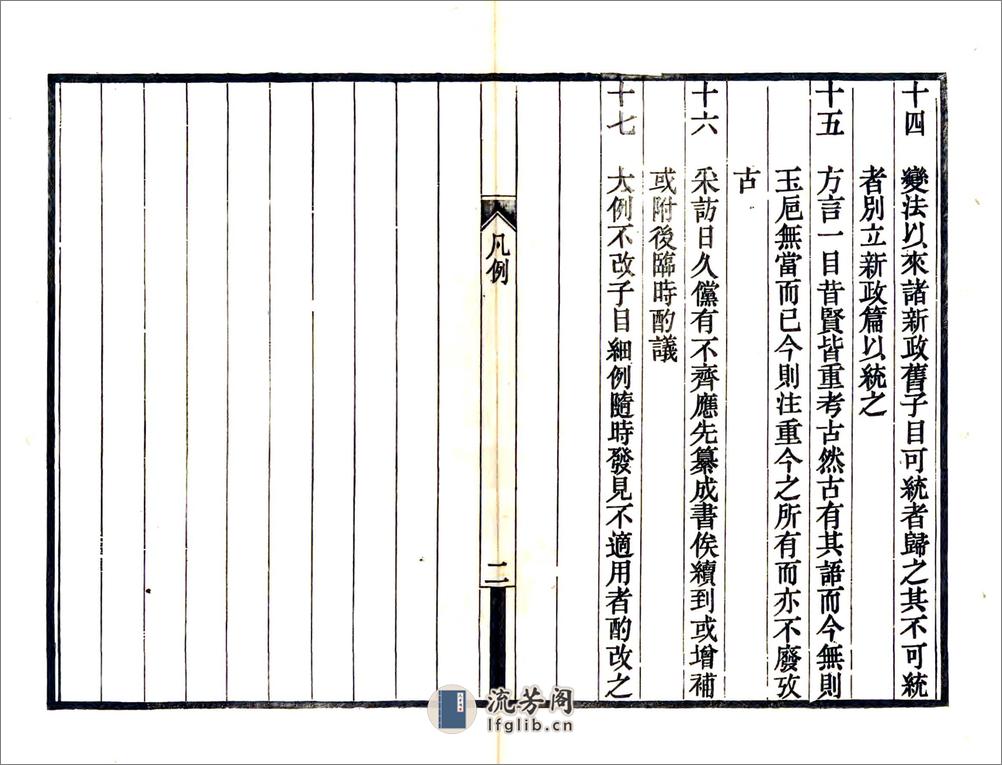 十四　變法以來諸新政舊子目可統者歸之其不可統
者別立新政篇以統之
十五　方言一目昔賢皆重考古然古有其語而今無則
玉巵無當而已今則注重今之所有而亦不廢攷
古
十六　采訪日久儻有不齊應先纂成書俟續到或增補
或附後臨時酌議
十七　大例不改子目細例隨時發見不適用者酌改之
凡例
二
流芳阁
lfglib.cn